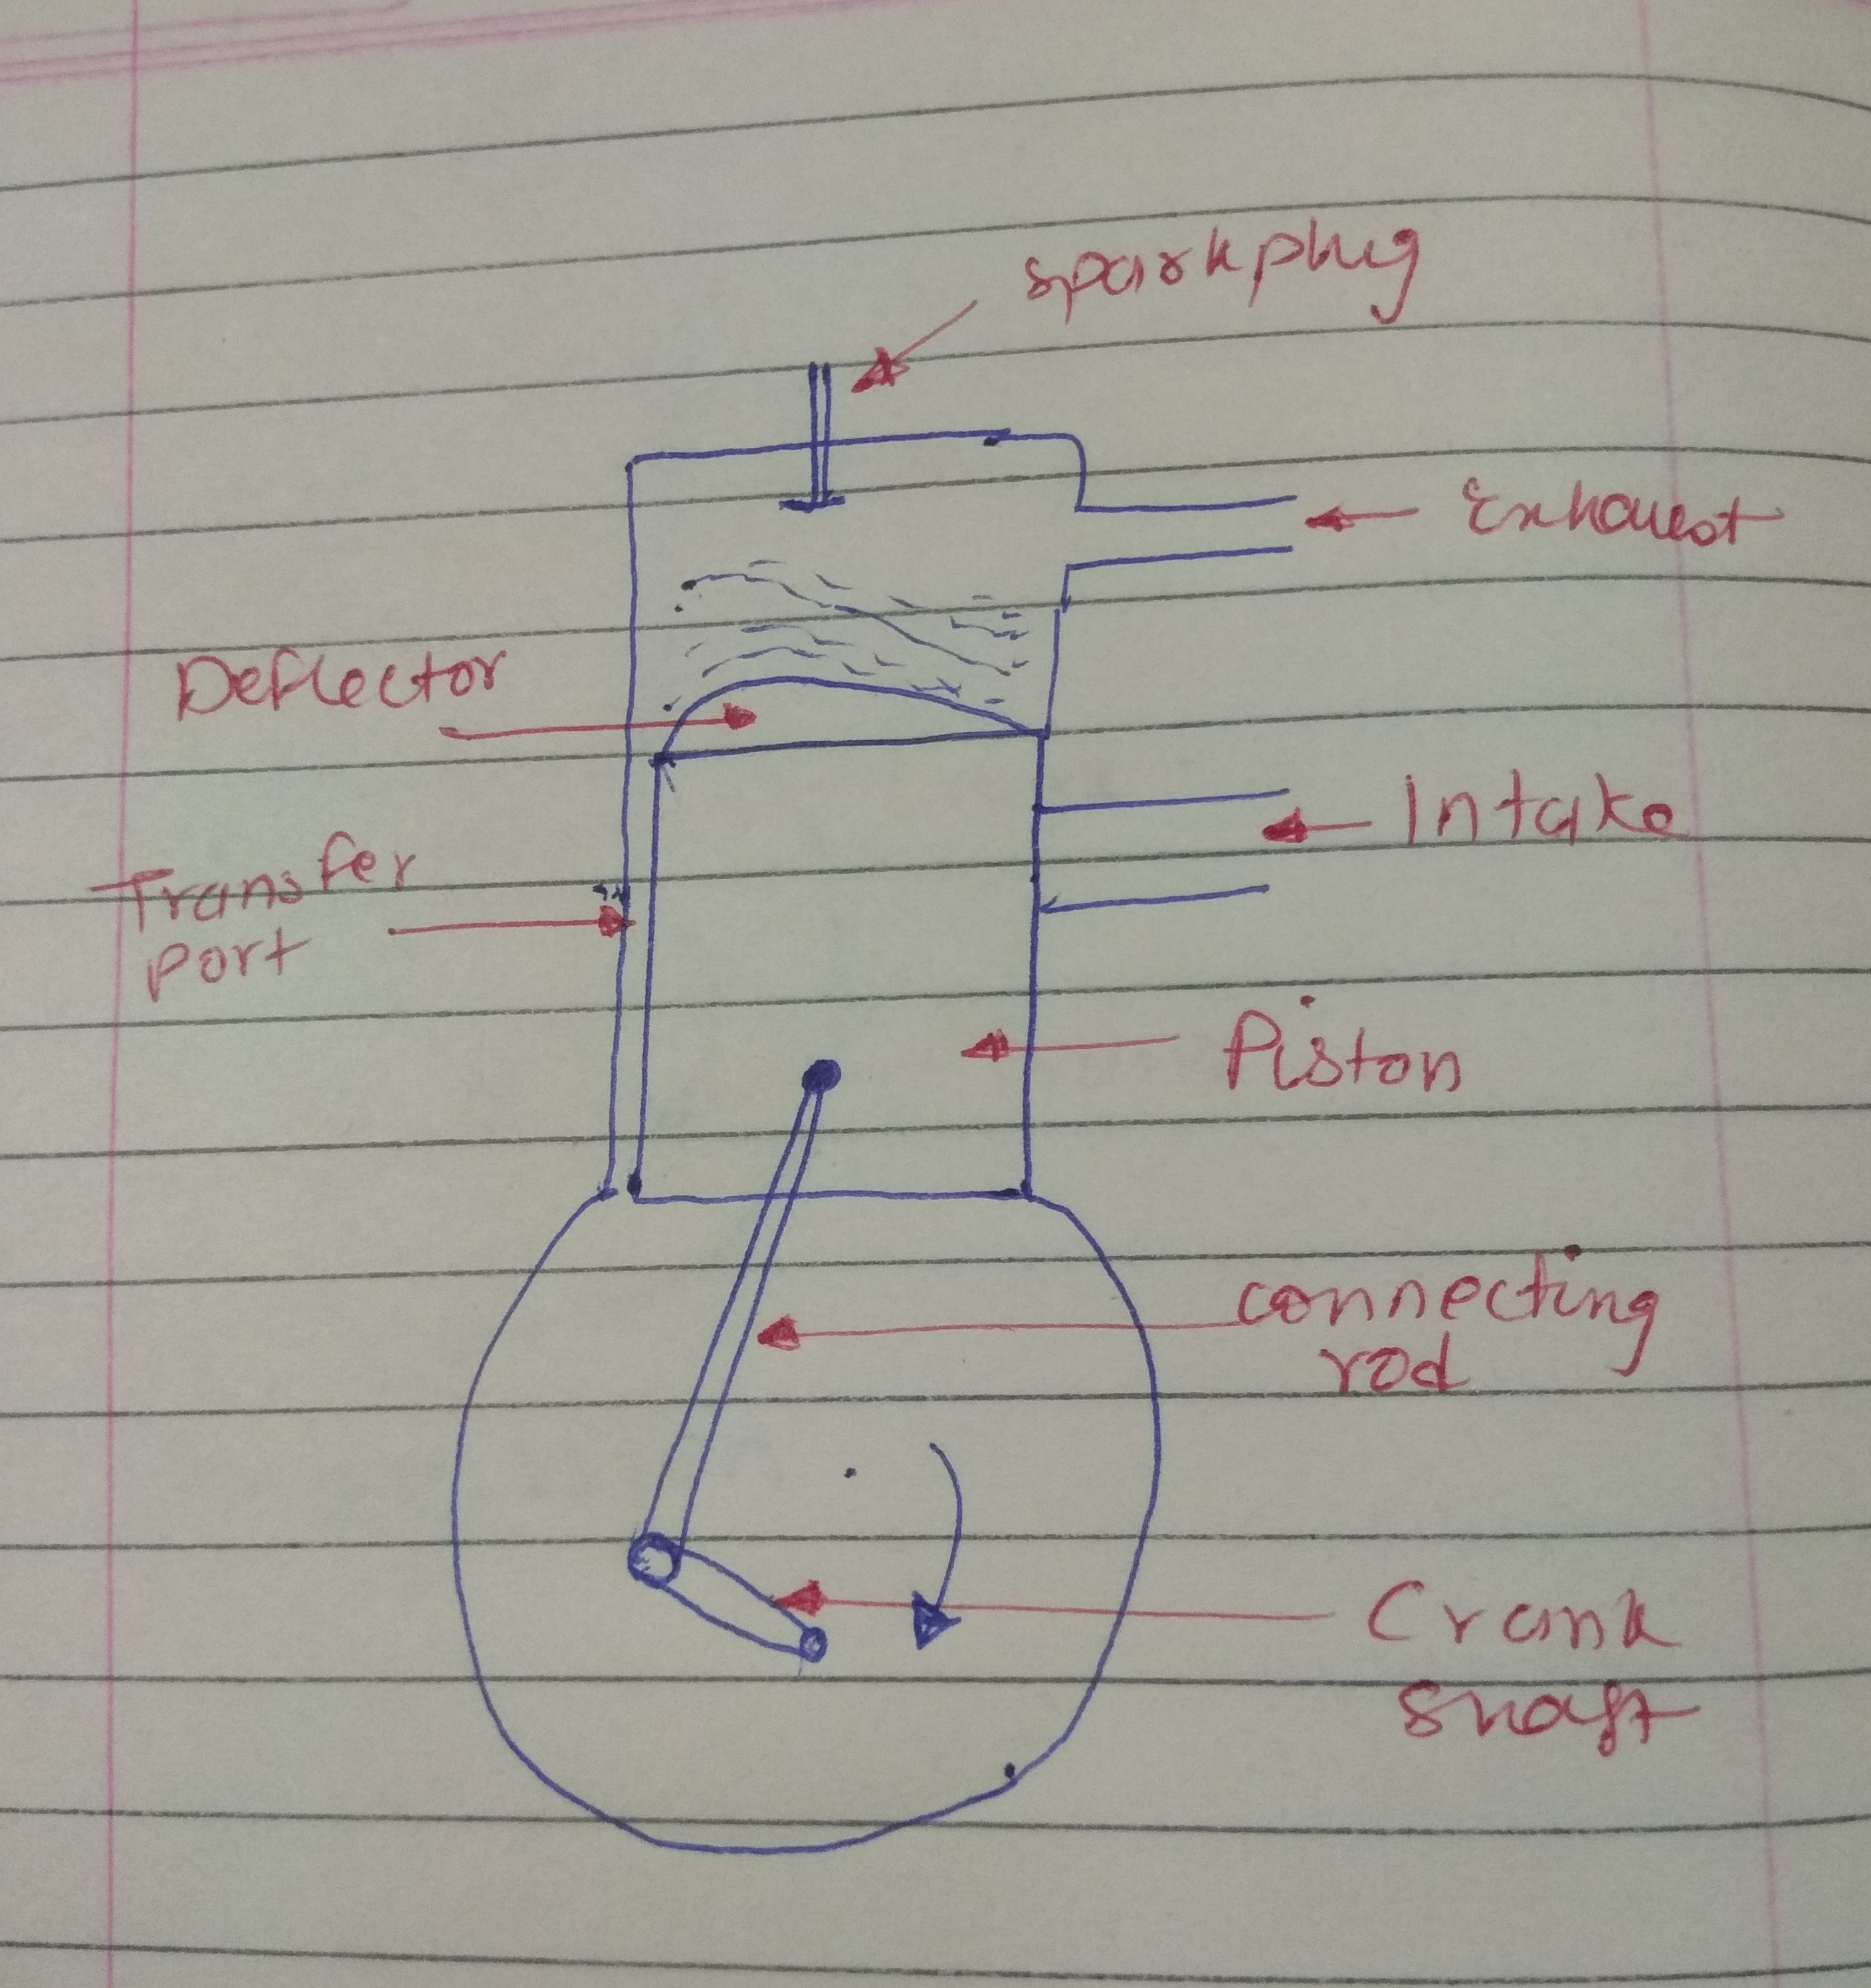 sparkplug
Exhaust
Deflector
Intake
Transfer
port
Piston
connecting
rod
Crank
shaft